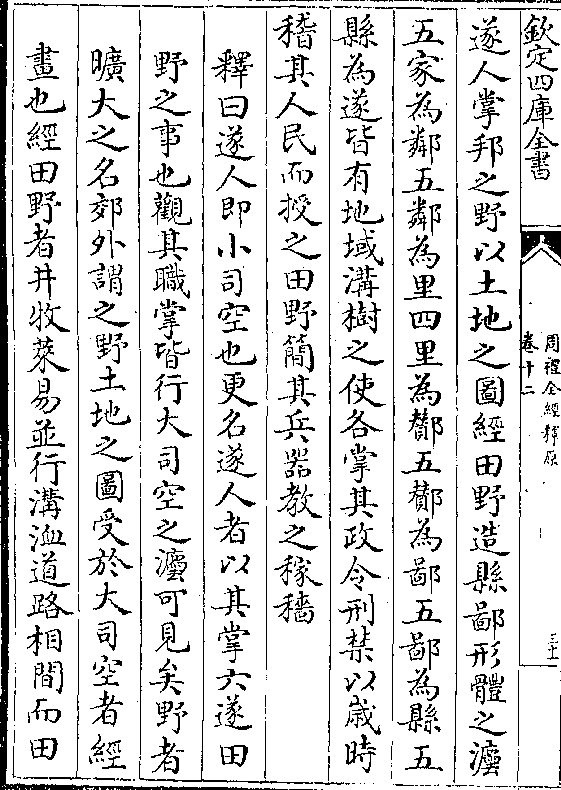 欽定四庫全書
周禮全經釋原
卷十二
三十一
遂人掌邦之野以土地之圖經田野造縣鄙形體之灋
五家為鄰五鄰為里四里為酇五酇為鄙五鄙為縣五
縣為遂皆有地域溝樹之使各掌其政令刑禁以歲時
稽其人民而授之田野簡其兵器教之稼穡
釋曰遂人即小司空也更名遂人者以其掌六遂田
野之事也觀其職掌皆行大司空之灋可見矣野者
曠大之名郊外謂之野土地之圖受於大司空者經
畫也經田野者井牧萊易並行溝洫道路相間而田